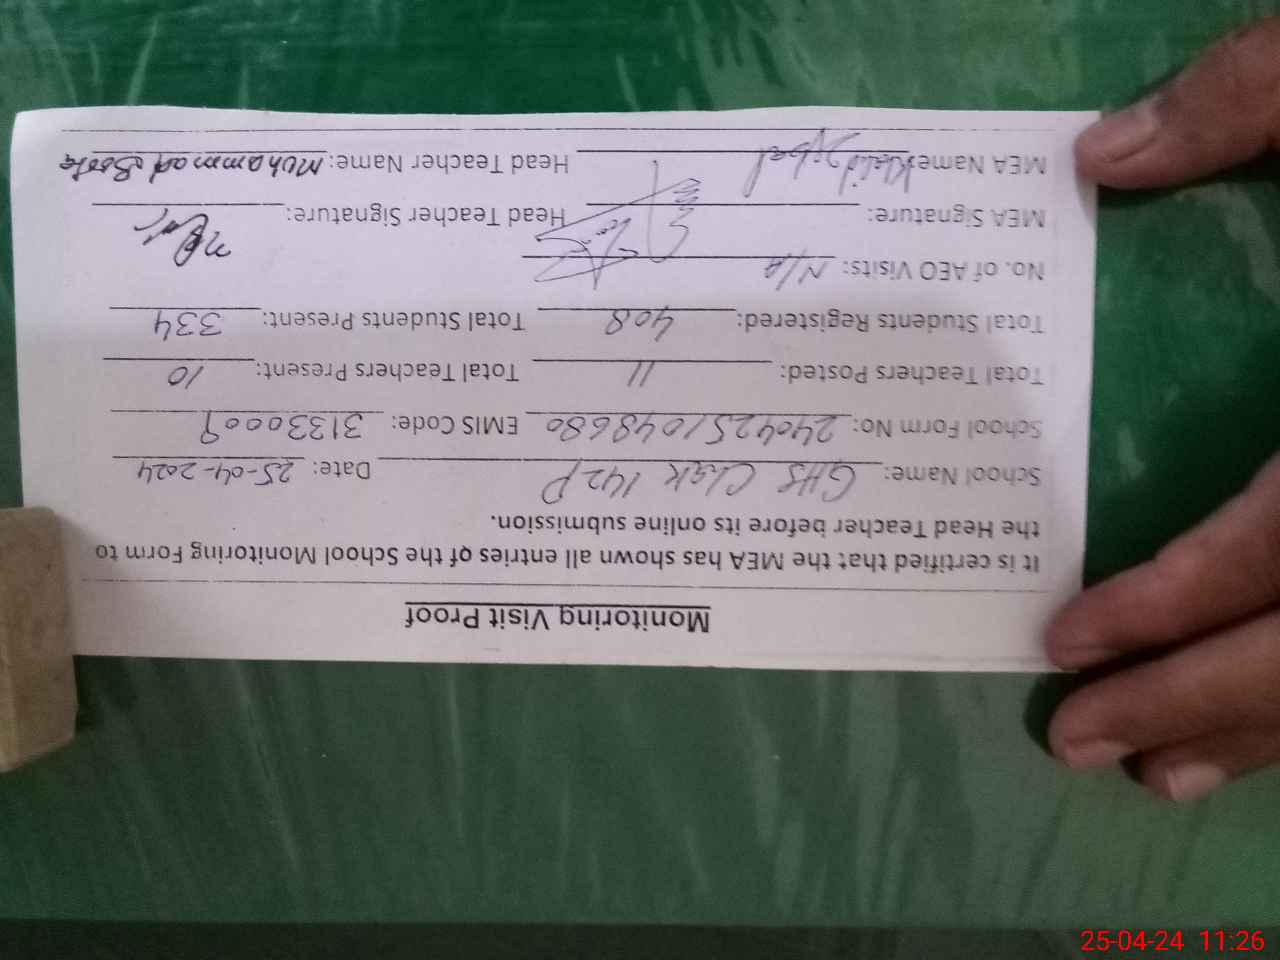 Monitoring Visit Proof
It is certified that the MEA has shown all entries of the School Monitoring Form to
the Head Teacher before its online submission.
School Name: GHS Chak 142P Date: 25-04-2024
School Form No: 2404251048680 EMIS Code: 31330009
Total Teachers Posted: 11 Total Teachers Present: 10
Total Students Registered: 408 Total Students Present: 334
No. of AEO Visits: N/A
MEA Signature: Head Teacher Signature:
MEA Name Khalid Iqbal Head Teacher Name: Muhammad Boota
25-04-24 11:26